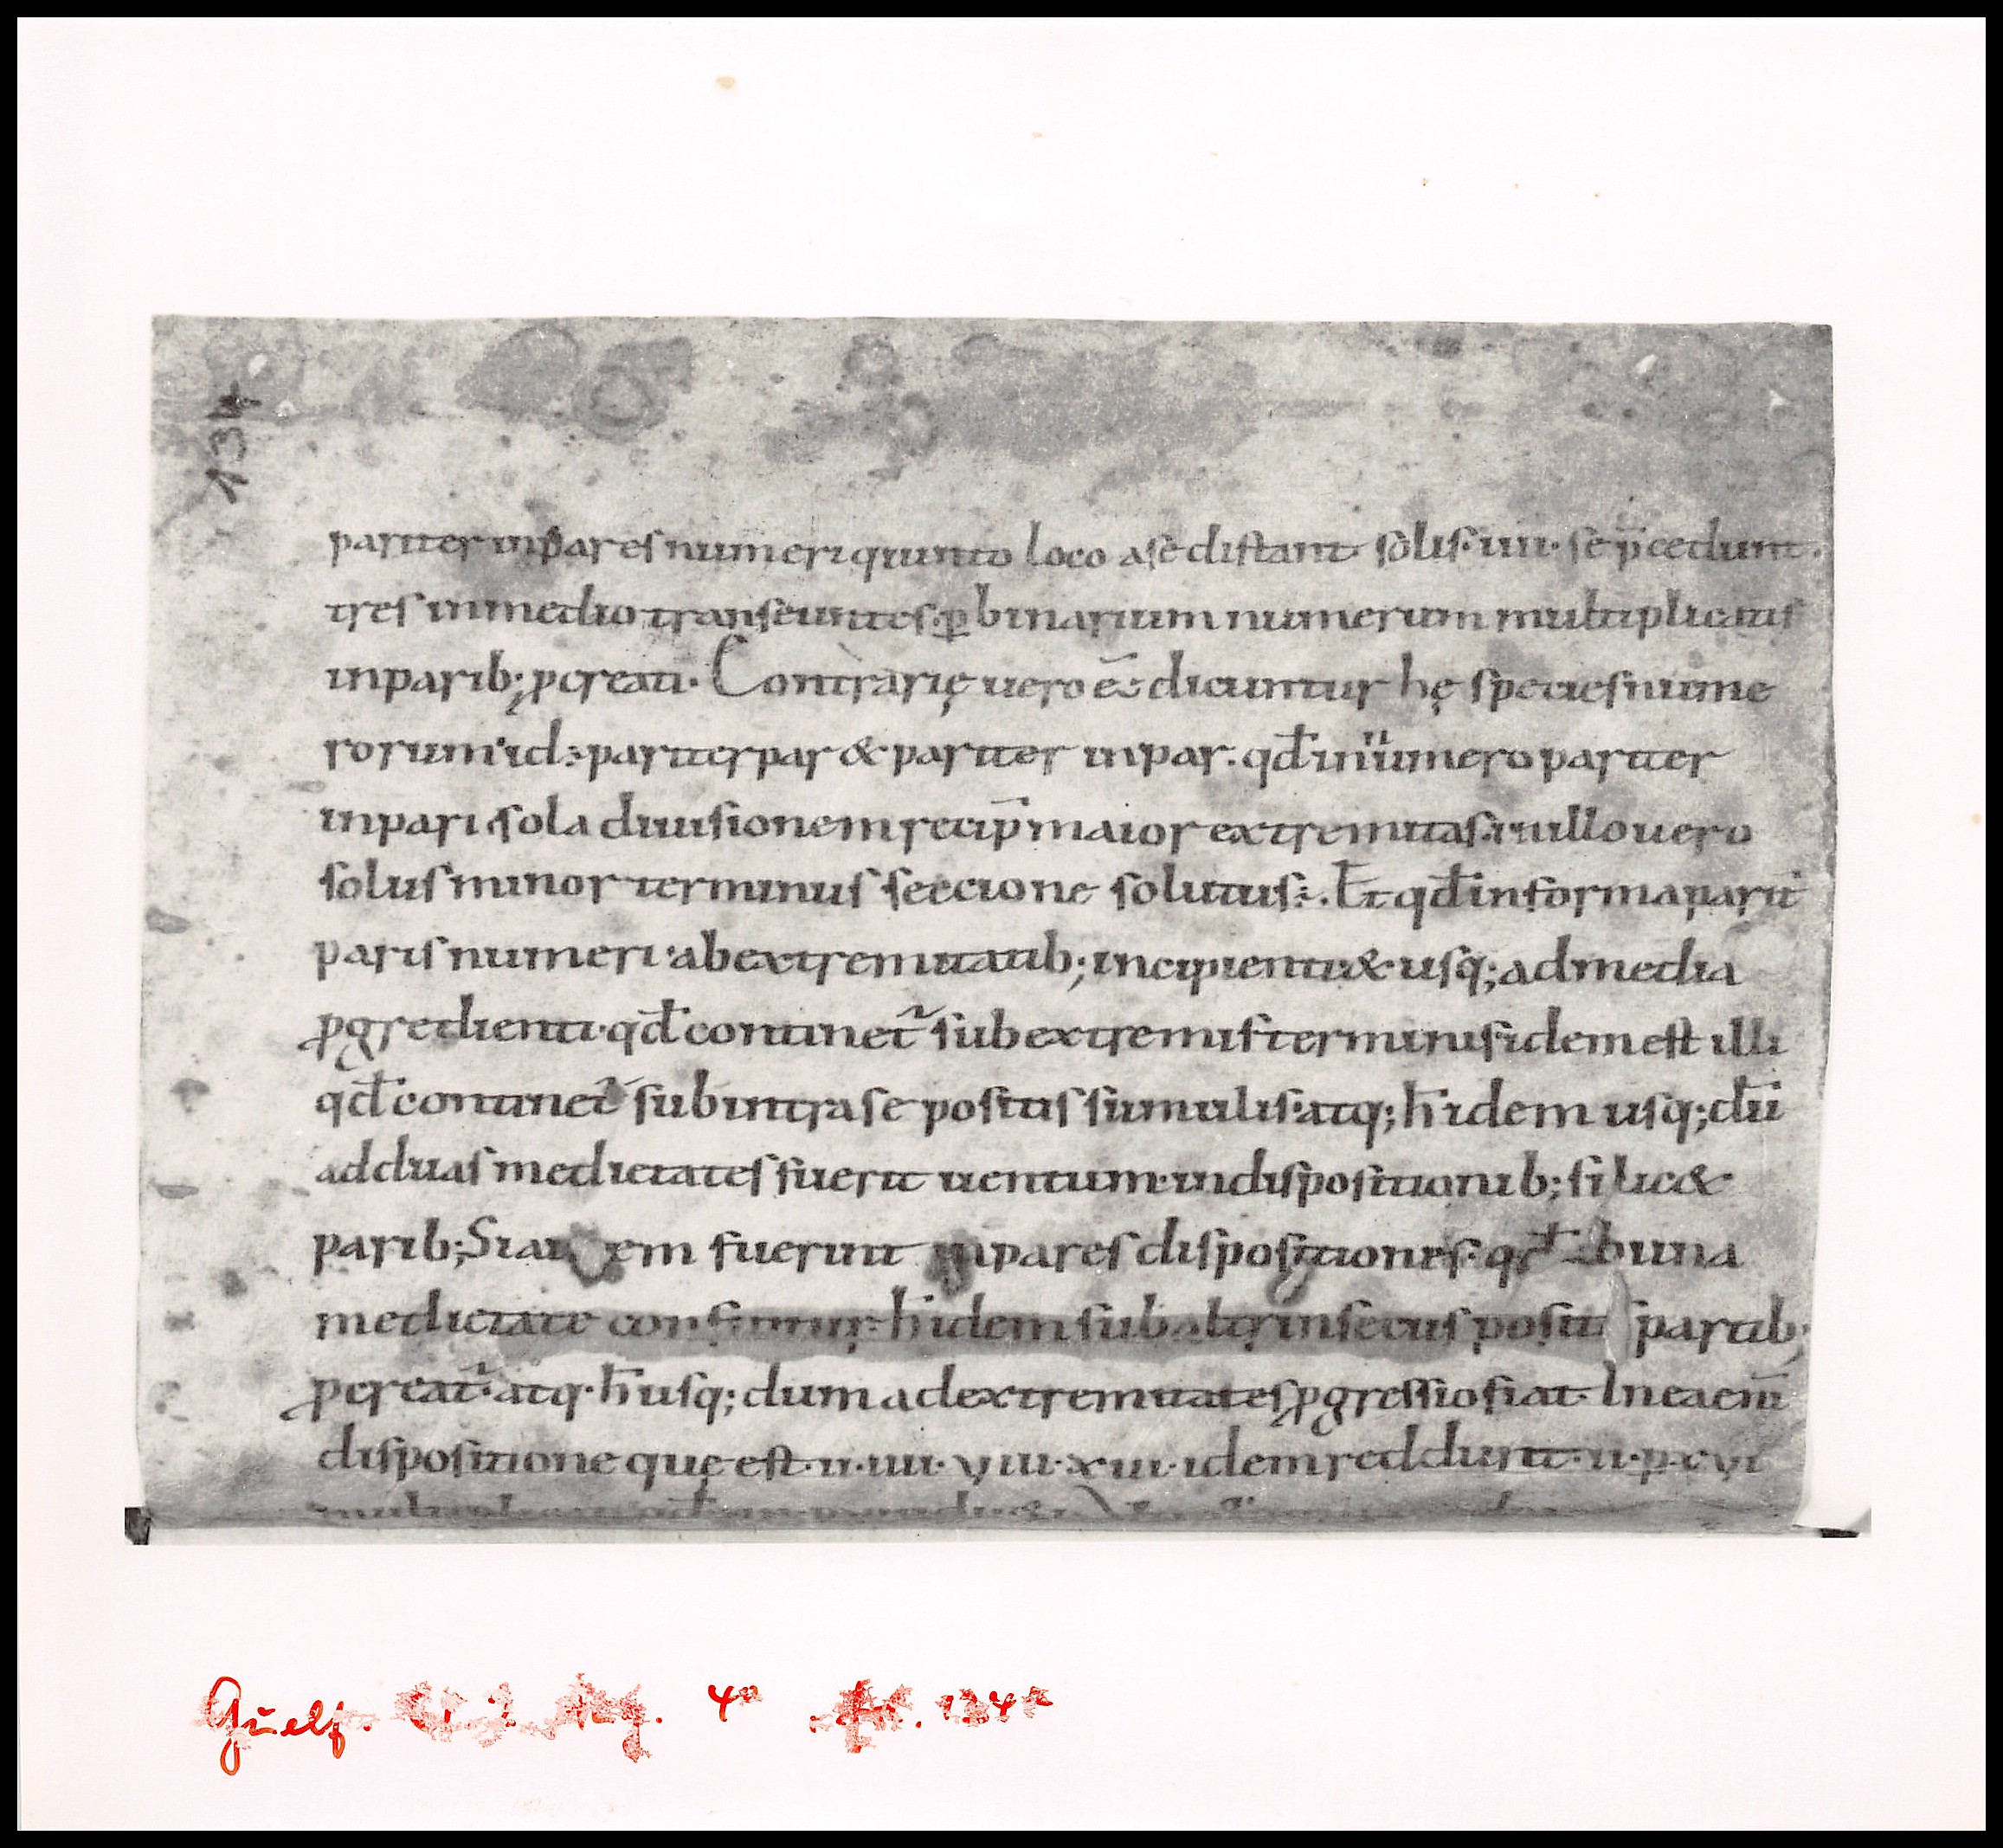 134
pariter inpares numeri quinto loco ase distant· solis· iiii· se p̄cedunt·
tres inmedio transeuntes· ꝑ binarium numerum multiplicatis
inparib; ꝓcreati· Contrarię uero ẽe dicuntur hę species nume
rorum· id ÷ pariter par & pariter inpar· qđ innumero pariter
inpari sola diuisionem recip̄ maior extremitas· nullo uero
solus minor terminus seccione solutus· Et qđ in forma parit̄
paris numeri· ab extremitatib; incipienti & usq; ad media
ꝓgredienti· qđ continet̃ sub extremis terminis idem est illi
qđ continet̃ sub intra se positis simulis· atq; h̄ idem usq; dū
ad duas medietates fuerit uentum· in dispositionib; silic &
parib; Si au em fuerint inpares dispositiones· qđ sub una
medietate conficitur· h̄ idem sub altrinsecus positis partib;
ꝓcreat̃· atq· h̄ usq; dum ad extremitates ꝓgressio fiat· In ea eni̅
dispositione quę est· ii· iiii· viii· xvi· idem reddunt· ii· ꝑ xvi
Guelf. 4° 134r